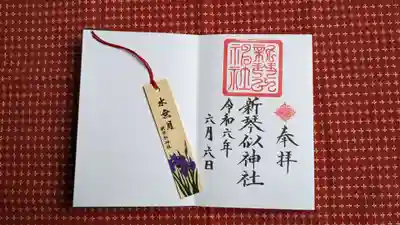 奉拝
新琴似神社
令和六年
六月六日
新琴似神社
水無月
新琴似神社